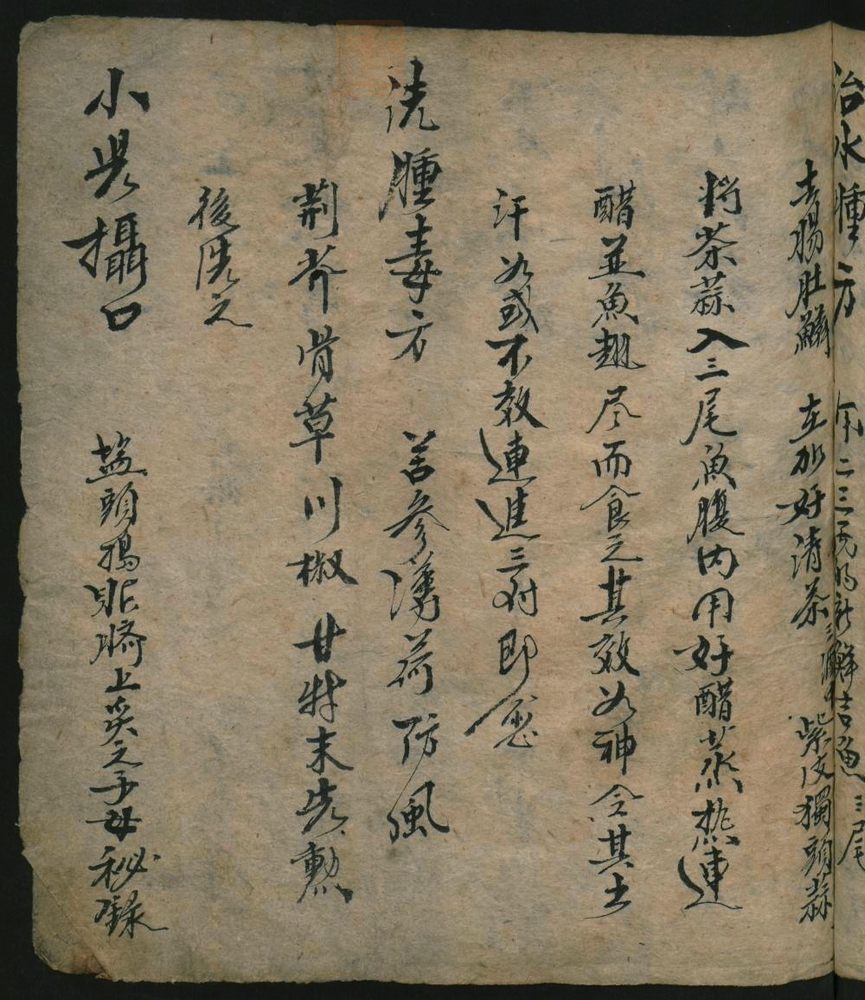 治水腫方 二三 新鮮吉魚三尾
去腸肚鱗 好清茶 紫皮獨頭蒜
将茶蒜入三尾魚腹内用好醋蒸熟連
醋並魚趐尽而食之其效如神令其出
汗如或不效連進三付即愈
洗腫毒方 苦參薄荷防風
荊芥骨草川椒甘草末先熏
後洗之
小児攝口 塩頭搗貼臍上灸之子母秘錄